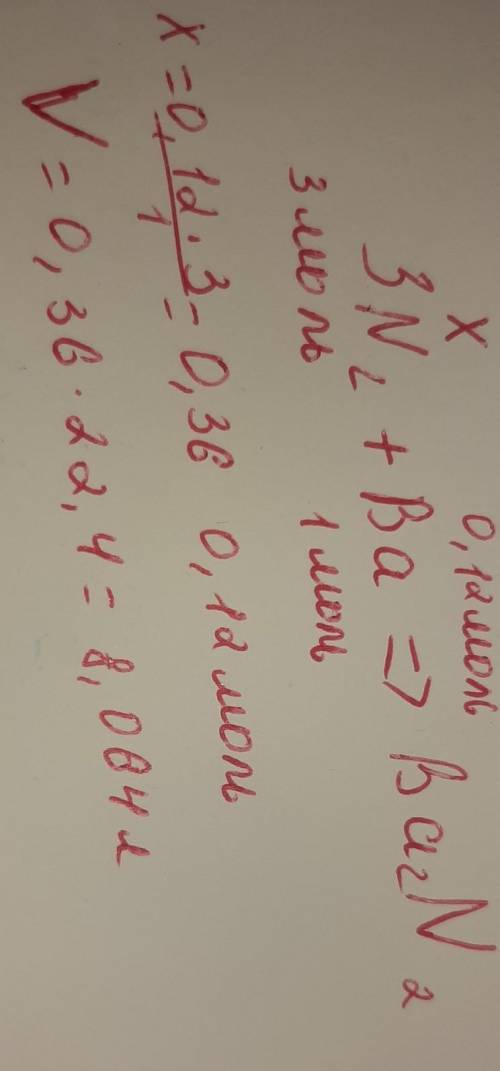 x 0,12моль
3N₂ + Ba => Ba₂N₂
3моль 1моль
x = 0,12·3/1 = 0,36 0,12моль
V = 0,36·22,4 = 8,064л